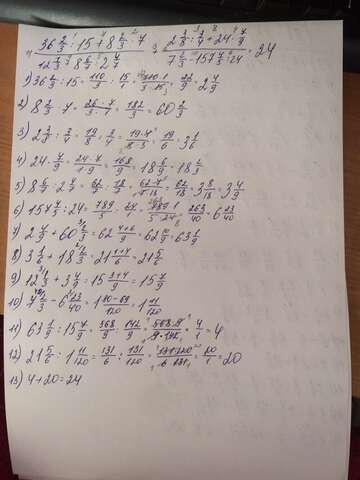 36 2/3 : 15 + 8 2/3 · 7 / 12 1/3 + 8 6/7 : 2 4/7 + 2 3/8 : 3/4 + 24 · 7/9 / 7 2/3 - 157 4/5 : 24 = 24
1) 36 2/3 : 15 = 110/3 : 15/1 = 110·1/3·15 = 22/9 = 2 4/9
2) 8 2/3 · 7 = 26/3 · 7/1 = 182/3 = 60 2/3
3) 2 3/8 : 3/4 = 19/8 : 3/4 = 19·4/8·3 = 19/6 = 3 1/6
4) 24 · 7/9 = 24·7/1·9 = 168/9 = 18 6/9 = 18 2/3
5) 8 6/7 : 2 4/7 = 62/7 : 18/7 = 62·7/7·18 = 62/18 = 3 8/18 = 3 4/9
6) 157 4/5 : 24 = 789/5 : 24/1 = 789·1/5·24 = 263/40 = 6 23/40
7) 2 4/9 + 60 2/3 = 62 4+6/9 = 62 10/9 = 63 1/9
8) 3 1/6 + 18 2/3 = 21 1+4/6 = 21 5/6
9) 12 1/3 + 3 4/9 = 15 3+4/9 = 15 7/9
10) 7 2/3 - 6 23/40 = 1 80-69/120 = 1 11/120
11) 63 1/9 : 15 7/9 = 568/9 : 142/9 = 568·9/9·142 = 4/1 = 4
12) 21 5/6 : 1 11/120 = 131/6 : 131/120 = 131·120/6·131 = 20/1 = 20
13) 4+20=24